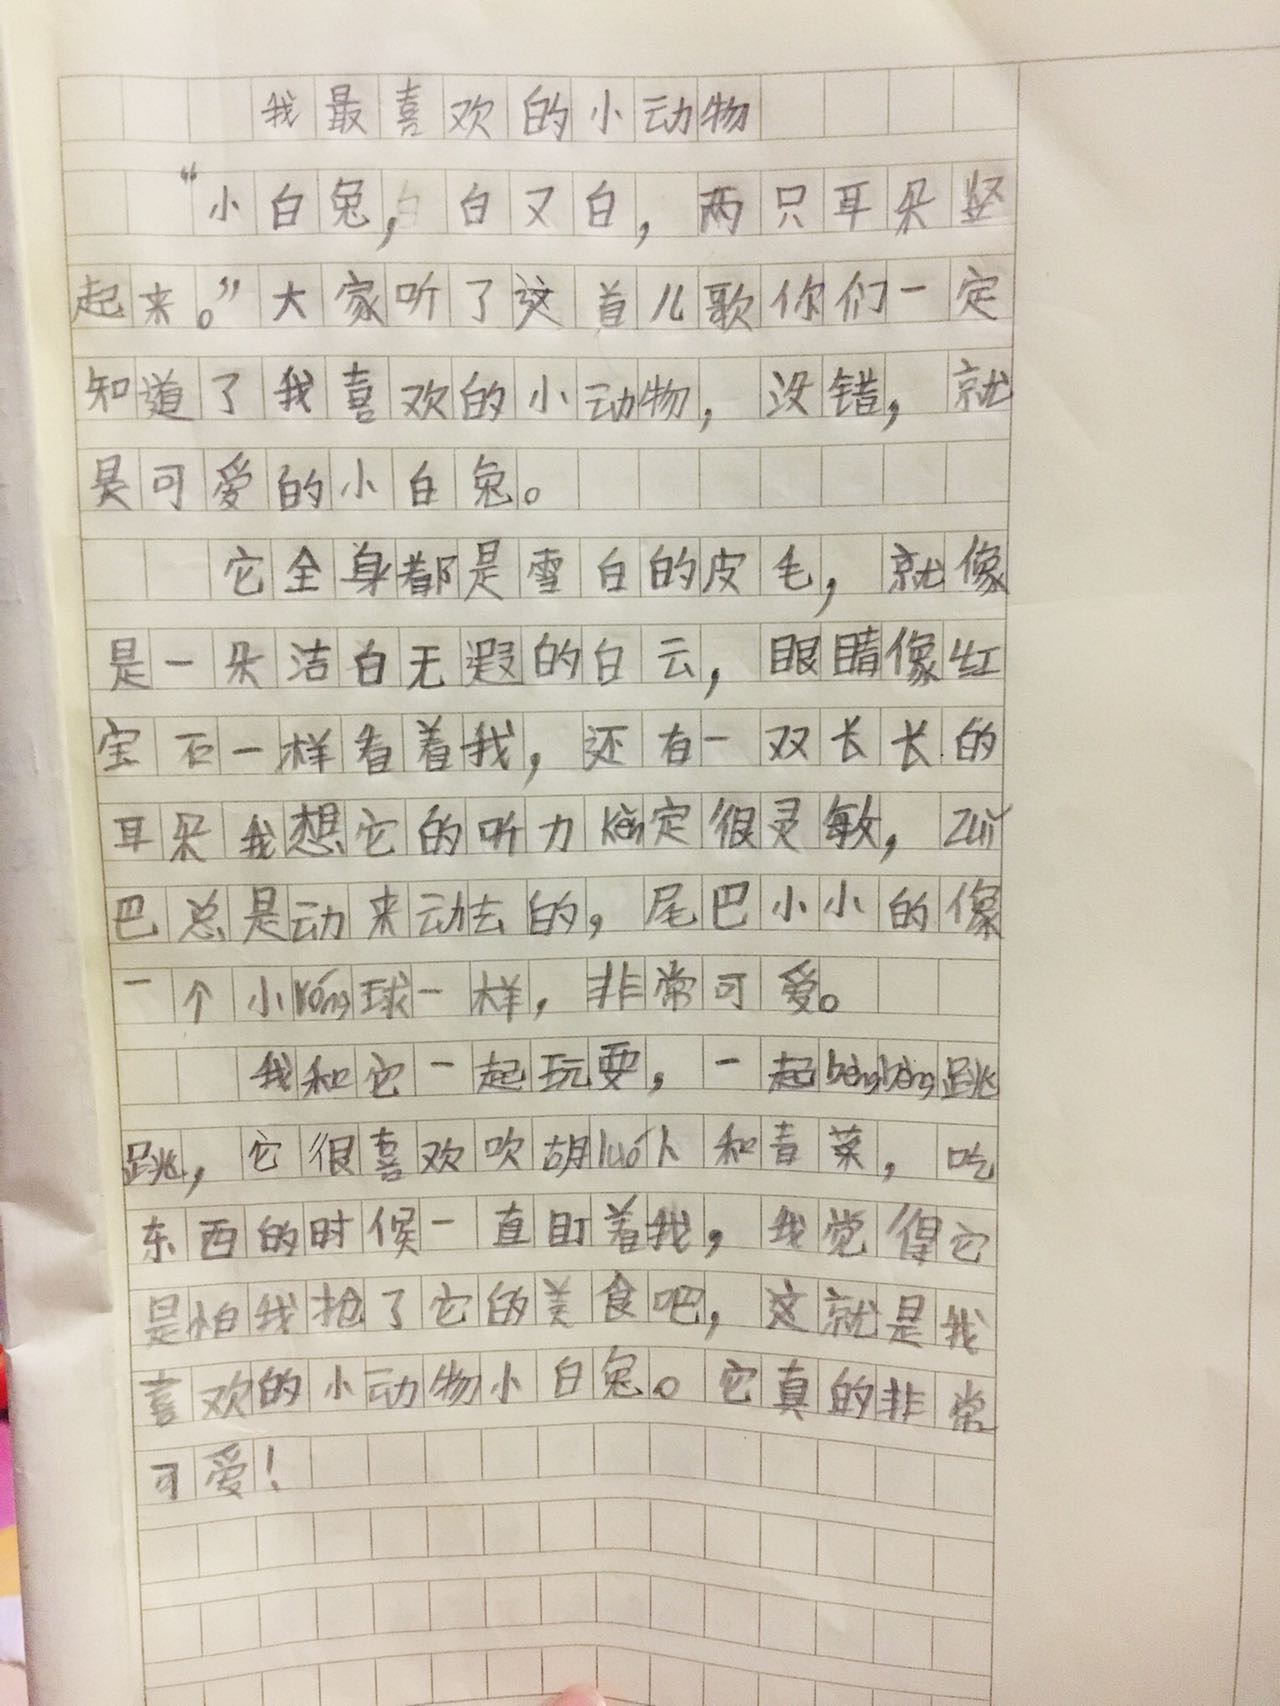 我最喜欢的小动物
“小白兔，白又白，两只耳朵竖
起来。”大家听了这首儿歌你们一定
知道了我喜欢的小动物，没错，就
是可爱的小白兔。
它全身都是雪白的皮毛，就像
是一朵洁白无瑕的白云，眼睛像红
宝石一样看着我，还有一双长长的
耳朵我想它的听力kěn定很灵敏，zuǐ
巴总是动来动去的，尾巴小小的像
一个小róng球一样，非常可爱。
我和它一起玩耍，一起bèngbèng跳
跳，它很喜欢吹胡luób和青菜，吃
东西的时候一直盯着我，我觉得它
是怕我抢了它的美食吧，这就是我
喜欢的小动物小白兔。它真的非常
可爱！